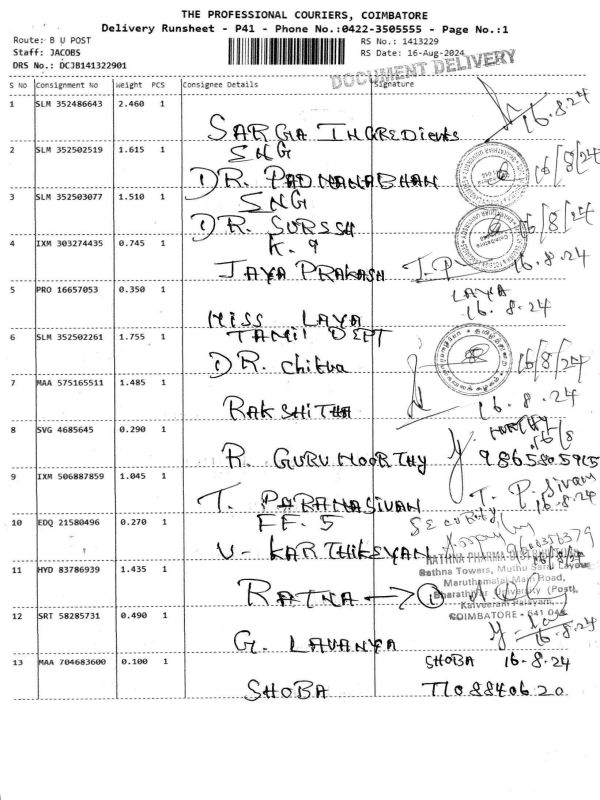 THE PROFESSIONAL COURIERS, COIMBATORE
Delivery Runsheet - P41 - Phone No.:0422-3505555 - Page No.:1
Route: B U POST
RS No.: 1413229
Staff: JACOBS
RS Date: 16-Aug-2024
DRS No.: DCJB141322901
DOCUMENT DELIVERY
S No Consignment No Weight PCS Consignee Details Signature
1 SLM 352486643 2.460 1
SARGA INGREDIENTS 16.8.24
2 SLM 352502519 1.615 1 SNG
DR. PADNANABHAN 16/8/24
3 SLM 352503077 1.510 1 SNG
DR. SURSSH 16/8/24
4 IXM 303274435 0.745 1 K. 9
JAYA PRAKASH J. P 16.8.24
5 PRO 16657053 0.350 1 LAYA
MISS LAYA 16.8.24
6 SLM 352502261 1.755 1 TAMIL DEPT
DR. chitra 16/8/24
7 MAA 575165511 1.485 1
RAKSHITHA 16.8.24
8 SVG 4685645 0.290 1 16/8
R. GURUMOORTHY 9865805915
9 IXM 506887859 1.045 1
T. PARANASIVAN T. P. Sivam 16.8.24
10 EDQ 21580496 0.270 1 FF. 5 Security
V- KARTHIKEYAN
11 HYD 83786939 1.435 1
RATHNA PHARMA
Rathna Towers, Muthu Layout
Maruthamalai Main Road,
Bharathiyar University (Post),
Kalveeram Palayam,
COIMBATORE - 641 046
RATNA → ①
12 SRT 58285731 0.490 1
G. LAVANYA 16.8.24
13 MAA 704683600 0.100 1 SHOBA 16-8-24
SHOBA 7708840620